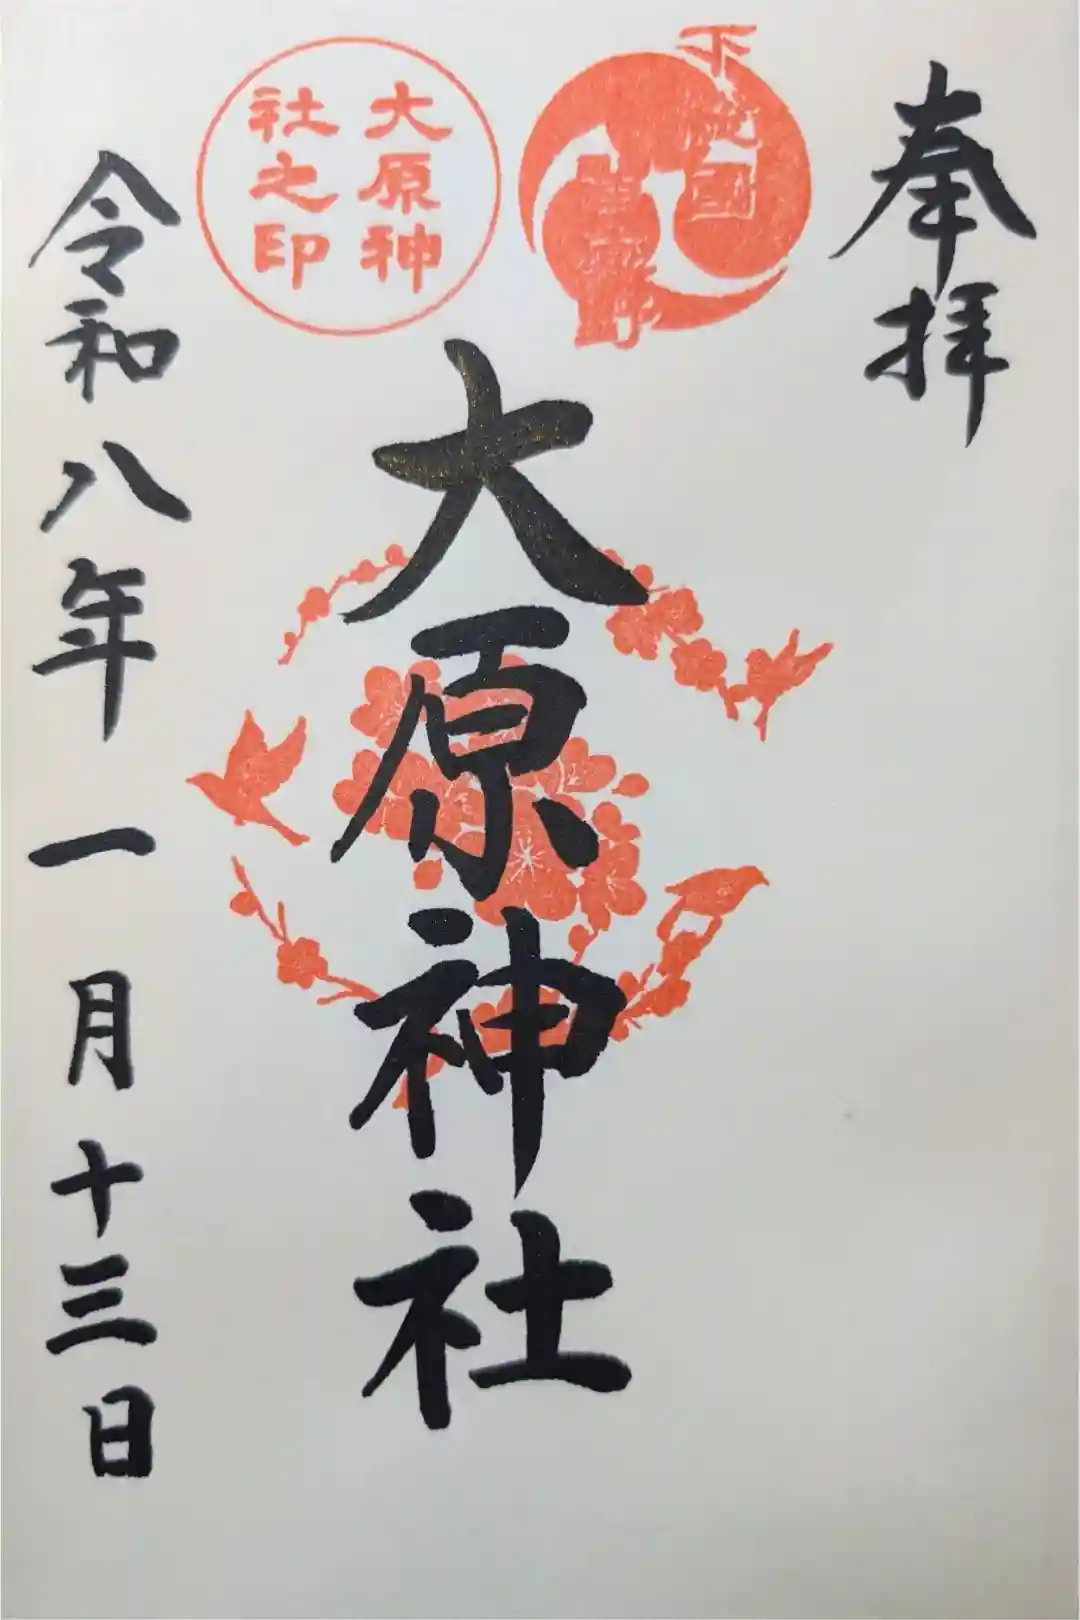 奉拝
下総國
大原神社之印
大原神社
令和八年一月十三日